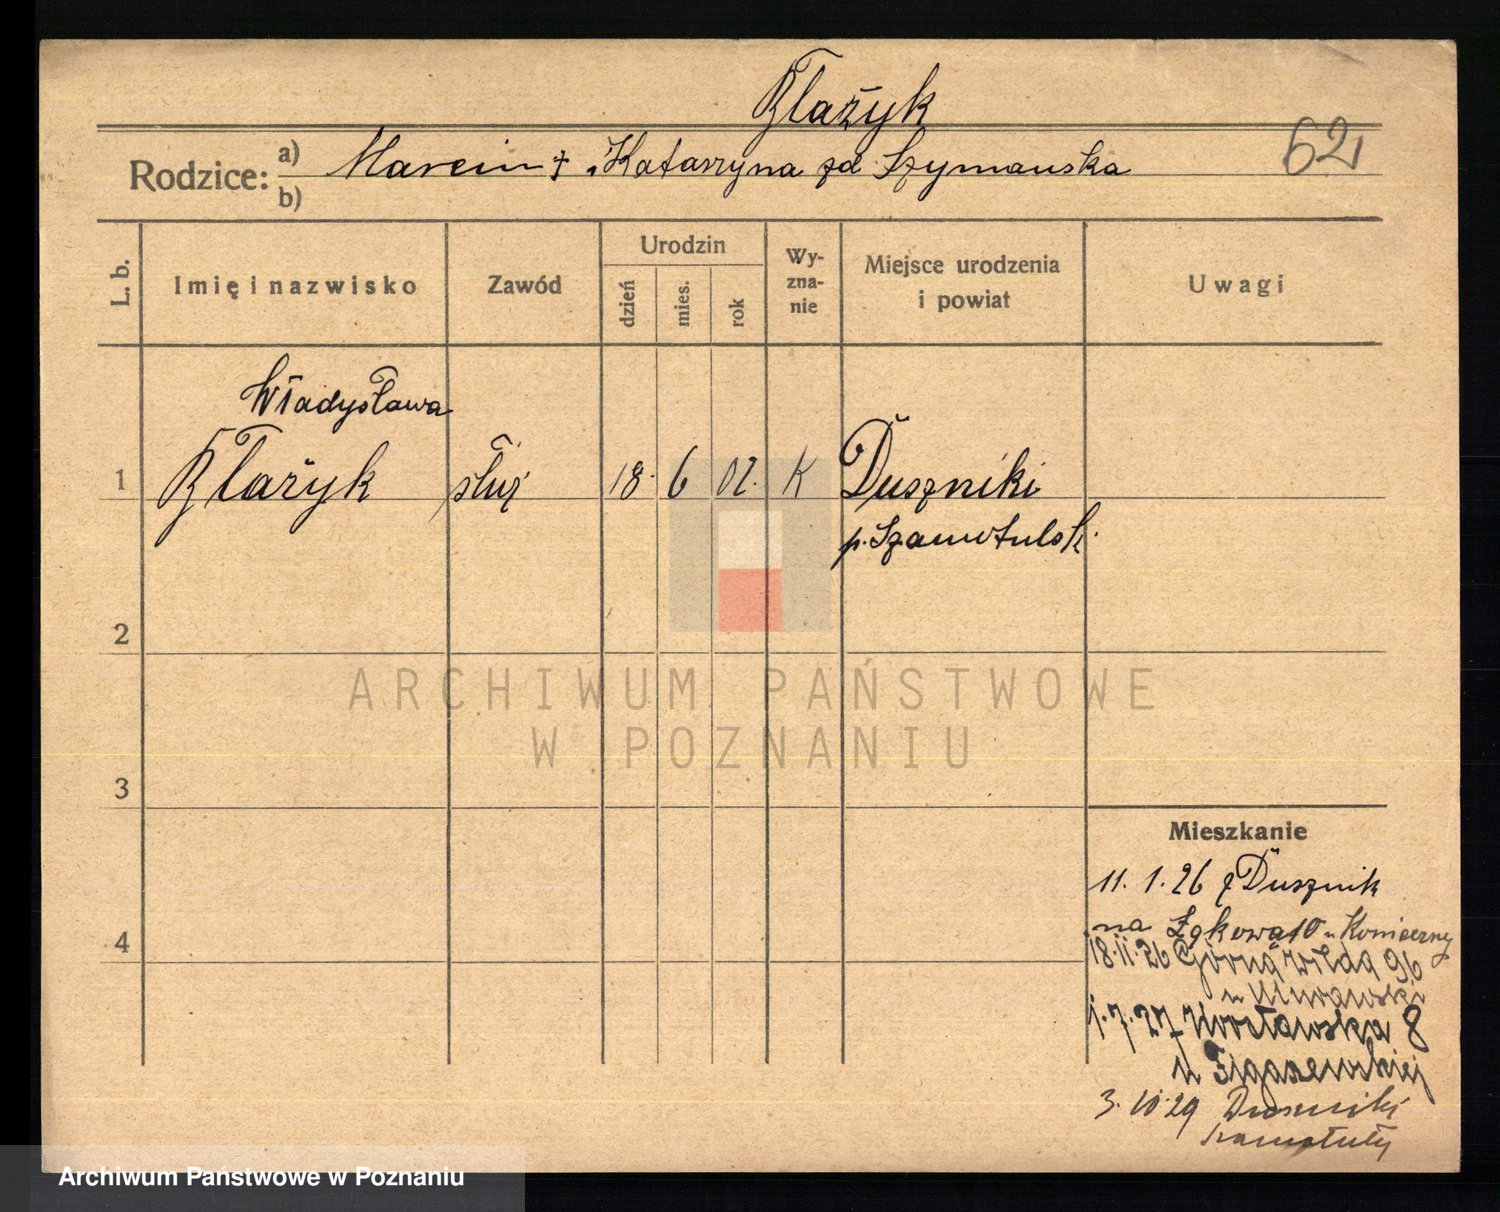 Kłażyk
62
Rodzice: a) Marcin + i Katarzyna zd Szymańska
b)
L. b.
Imię i nazwisko
Zawód
Urodzin
dzień
mies.
rok
Wy-
zna-
nie
Miejsce urodzenia
i powiat
Uwagi
Władysława
1 Kłażyk służ 18. 6 02. K Duszniki
p. Szamotulski
2
3
4
Mieszkanie
11. 1. 26 z Dusznik
na Łąkową 10 u Konieczny
18.11.26 Górna Wilda 96
u Murawski
1.7.27 Wrocławska 8
u Figaszewskiej
3.10.29 Duszniki
Szamotuły
ARCHIWUM PAŃSTWOWE
W POZNANIU
Archiwum Państwowe w Poznaniu